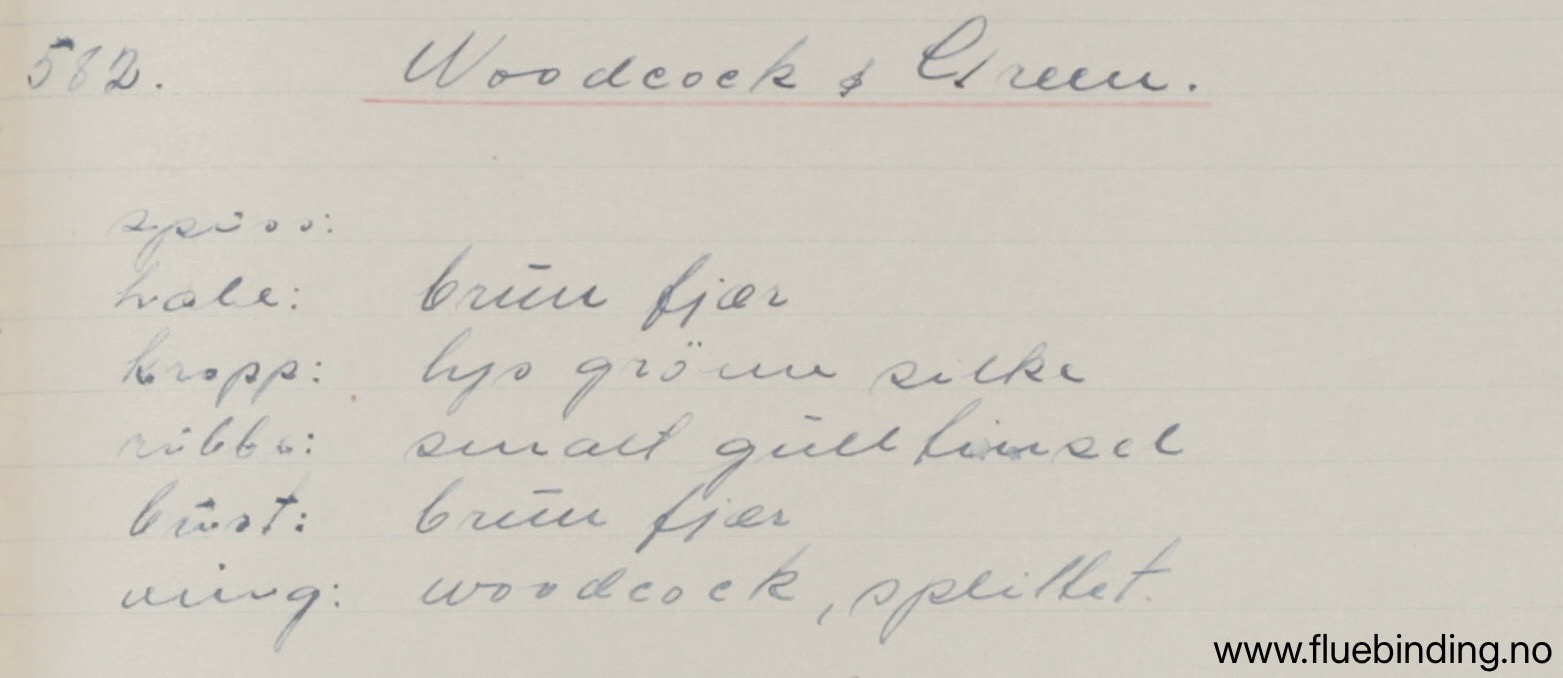 582. Woodcock & Green.
spiss:
hale: brun fjær
kropp: lys grönn silke
ribbe: smalt gull tinsel
bust: brun fjær
ving: woodcock, splittet.
www.fluebinding.no